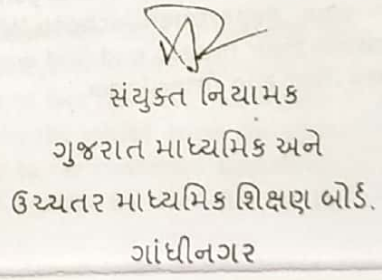 સંયુક્ત નિયામક
ગુજરાત માધ્યમિક અને
ઉચ્ચતર માધ્યમિક શિક્ષણ બોર્ડ.
ગાંધીનગર